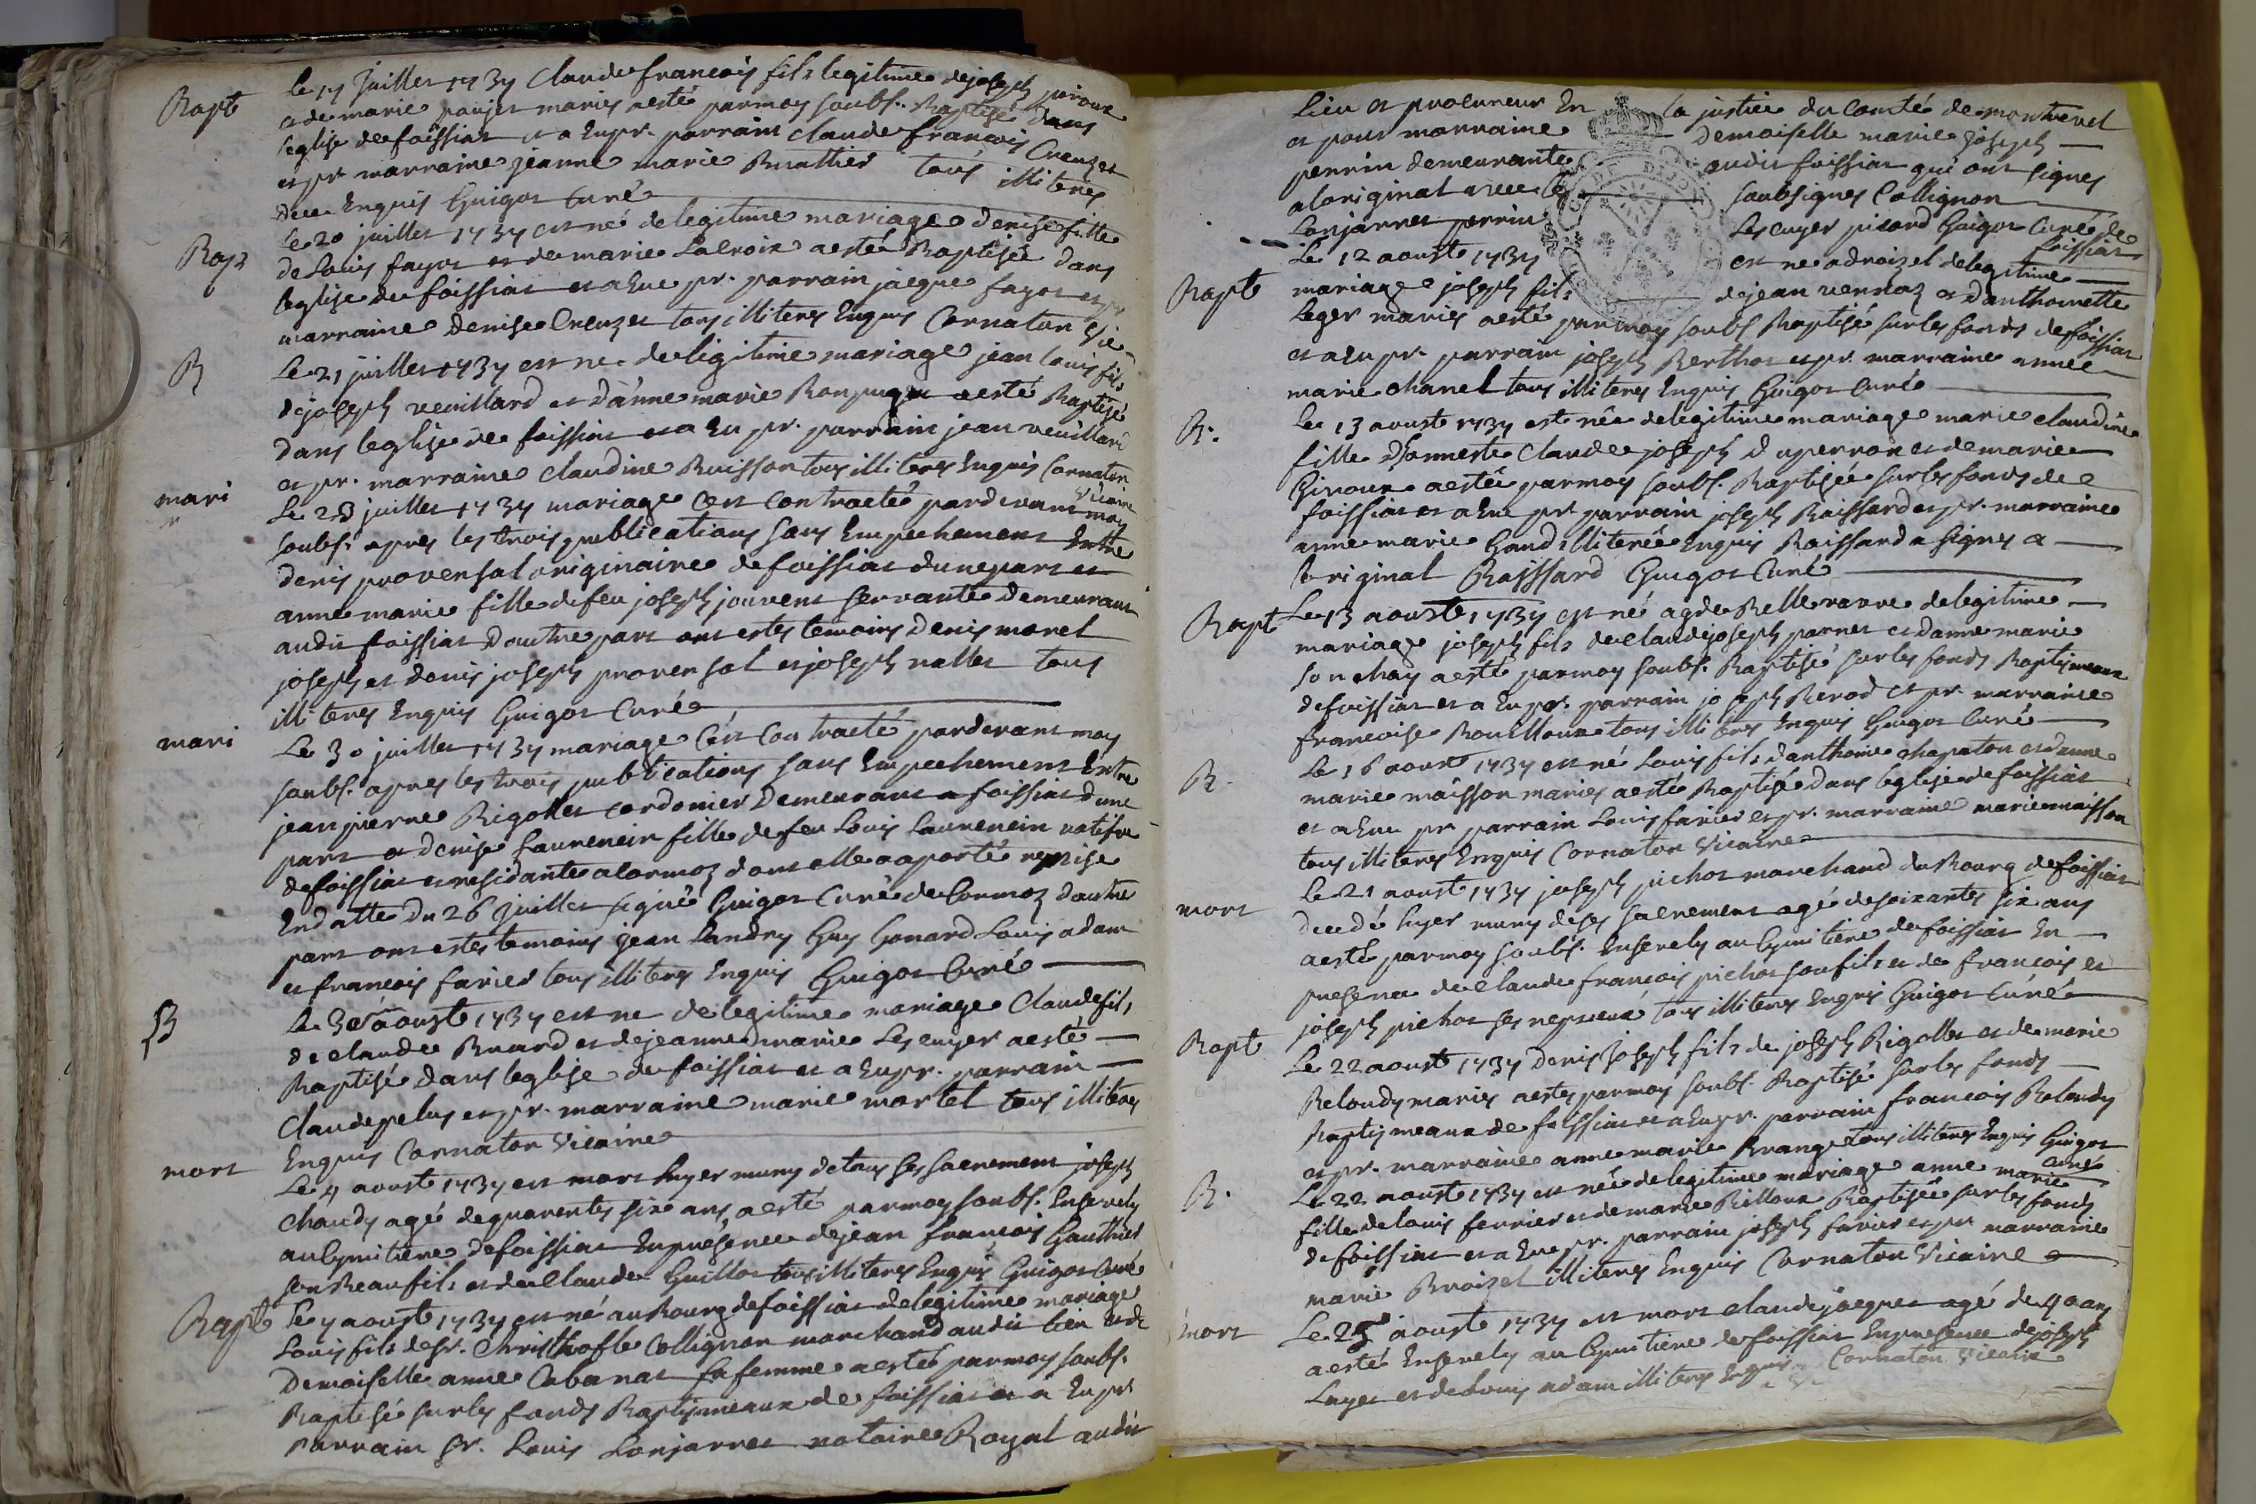 Bapt
Le 17 Juillet 1737 Claude francois fils legitime de joseph piroux
et de marie paujet mariés a esté par moy soubs. Baptisé dans
l'eglise de foissiat et a Eu pr. parrain claude francois Creuzet
et pr marraine jeanne marie Brattier tous illiteres
de ce Enquis Guigot Curé
Bapt
Le 20 juillet 1737 est né de legitime mariage denise fille
de Louis fayot et de marie Lacroix a esté Baptisée dans
leglise de foissiat et a Eue pr. parrain jacque fayot et pr
marraine denise Creuzet tous illiteres Enquis Cornaton Vic
B
Le 21 juillet 1737 est né de legitime mariage jean Louis fils
de joseph veuillard et d'anne marie a esté Baptisé
dans leglise de foissiat et a Eu pr. parrain jean veuillard
et pr. marraine claudine Buisson tous illiteres Enquis Cornaton
Vicaire
mari
Le 23 juillet 1737 mariage c'est contracté pardevant moy
soubs. apres les trois publications sans Empechement Entre
denis provensal originaire de foissiat dune part et
anne marie fille de feu joseph jouvent servante demeurant
audit foissiat d'autre part ont estes temoins denis morel
joseph et denis joseph provensal et joseph vallet tous
illiteres Enquis Guigot Curé
mari
Le 30 juillet 1737 mariage c'est contracté pardevant moy
soubs. apres les trois publications sans Empechement Entre
jean pierre Rigollet cordonier Demeurant a foissiat dune
part et denise Laurencin fille de feu Louis Laurencin natifve
de foissiat et residante a Cormoz dont elle a aporté remise
En datte du 26 Juillet signé Guigot Curé de Cormoz dautre
part ont estes temoins jean Landry Guy Gonard Louis adam
et francois favier tous illiteres Enquis Guigot Curé
B
Le 3e aoust 1737 est né de legitime mariage Claude fils
de claude Buard et de jeanne marie Lescuyer a esté
Baptisé dans leglise de foissiat et a Eu pr. parrain
Claude pelus et pr. marraine marie martel tous illiteres
Enquis Cornaton Vicaire
mort
Le 4 aoust 1737 est mort hyer muny de tous ses sacrement joseph
Chaudy agé de quarente six ans a esté par moy soubs. Ensevely
au Cymitiere de foissiat En presence de jean francois Gauthier
son Beaufils et de Claude Guillot tous illiteres Enquis Guigot Curé
Bapt
Le 7 aoust 1737 est né au Bourg de foissiat de legitime mariage
Louis fils de sr. Christhofle Collignon marchand audit lieu et de
Demoiselle anne Cabanat sa femme a esté par moy soubs.
Baptisé sur les fonds Baptismeaux de foissiat et a Eu pr
parrain sr. Louis Lonjarret notaire Royal audit
Lieu et procureur En la justice du Comté de montrevel
et pour marraine Demoiselle marie joseph
perrin demeurante audit foissiat qui ont signes
a loriginal avec soubsignes Collignon
Lonjarret perrin Lescuyer picard Guigot Curé de
foissiat
Bapt
Le 12 aoust 1737 est né a droizel de legitime
mariage joseph fils de jean vennoz et d'anthoinette
Leger maries a esté par moy soubs Baptisé sur les fonds de foissiat
et a Eu pr. parrain joseph Berthot et pr. marraine anne
marie chanel tous illiteres Enquis Guigot Curé
B.
Le 13 aoust 1737 est née de legitime mariage marie claudine
fille d'honneste Claude joseph Duperron et de marie
Giroux a estée par moy soubs. Baptisée sur les fonds de
foissiat et a Eue pr. parrain joseph Raissard et pr. marraine
anne marie Gaud illiterée Enquis Raissard a signes a
loriginal Raissard Guigot Curé
Bapt
Le 13 aoust 1737 est né de legitime
mariage joseph fils de claude joseph parnet et d'anne marie
Sonchay a esté par moy soubs. Baptisé sur les fonds Baptismeaux
de foissiat et a Eu pr. parrain joseph Berod et pr. marraine
francoise Bouilloux tous illiteres Enquis Guigot Curé
B.
Le 16 aoust 1737 est né Louis fils d'anthoine chapaton et d'anne
marie maisson maries a esté Baptisé dans leglise de foissiat
et a Eu pr parrain Louis favier et pr. marraine marie maisson
tous illiteres Enquis Cornaton Vicaire
mort
Le 21 aoust 1737 joseph pichot marchand du Bourg de foissiat
decedé hyer muny de ses sacrement agé de soixantes six ans
a esté par moy soubs. Ensevely au Cymitiere de foissiat En
presence de claude francois pichot son fils et de francois et
joseph pichot ses nepveux tous illiteres Enquis Guigot Curé
Bapt
Le 22 aoust 1737 Denis Joseph fils de joseph Rigollet et de marie
Beloudy maries a estes par moy soubs. Baptisé sur les fonds
Baptismeaux de foissiat et a Eu pr. parrain francois Beloudy
et pr. marraine anne marie Brange tous illiteres Enquis Guigot
Curé
B.
Le 22 aoust 1737 est née de legitime mariage anne marie
fille de Louis ferrier et de marie Billoux Baptisée sur les fonds
de foissiat et a Eue pr. parrain joseph favier et pr marraine
marie Broizel illiteres Enquis Cornaton Vicaire
mort
Le 25 aoust 1737 est mort claude jacquet agé de 40 ans
a esté Ensevely au Cymitiere de foissiat En presence de joseph
Luyet et de Louis adam illiteres Enquis Cornaton Vicaire